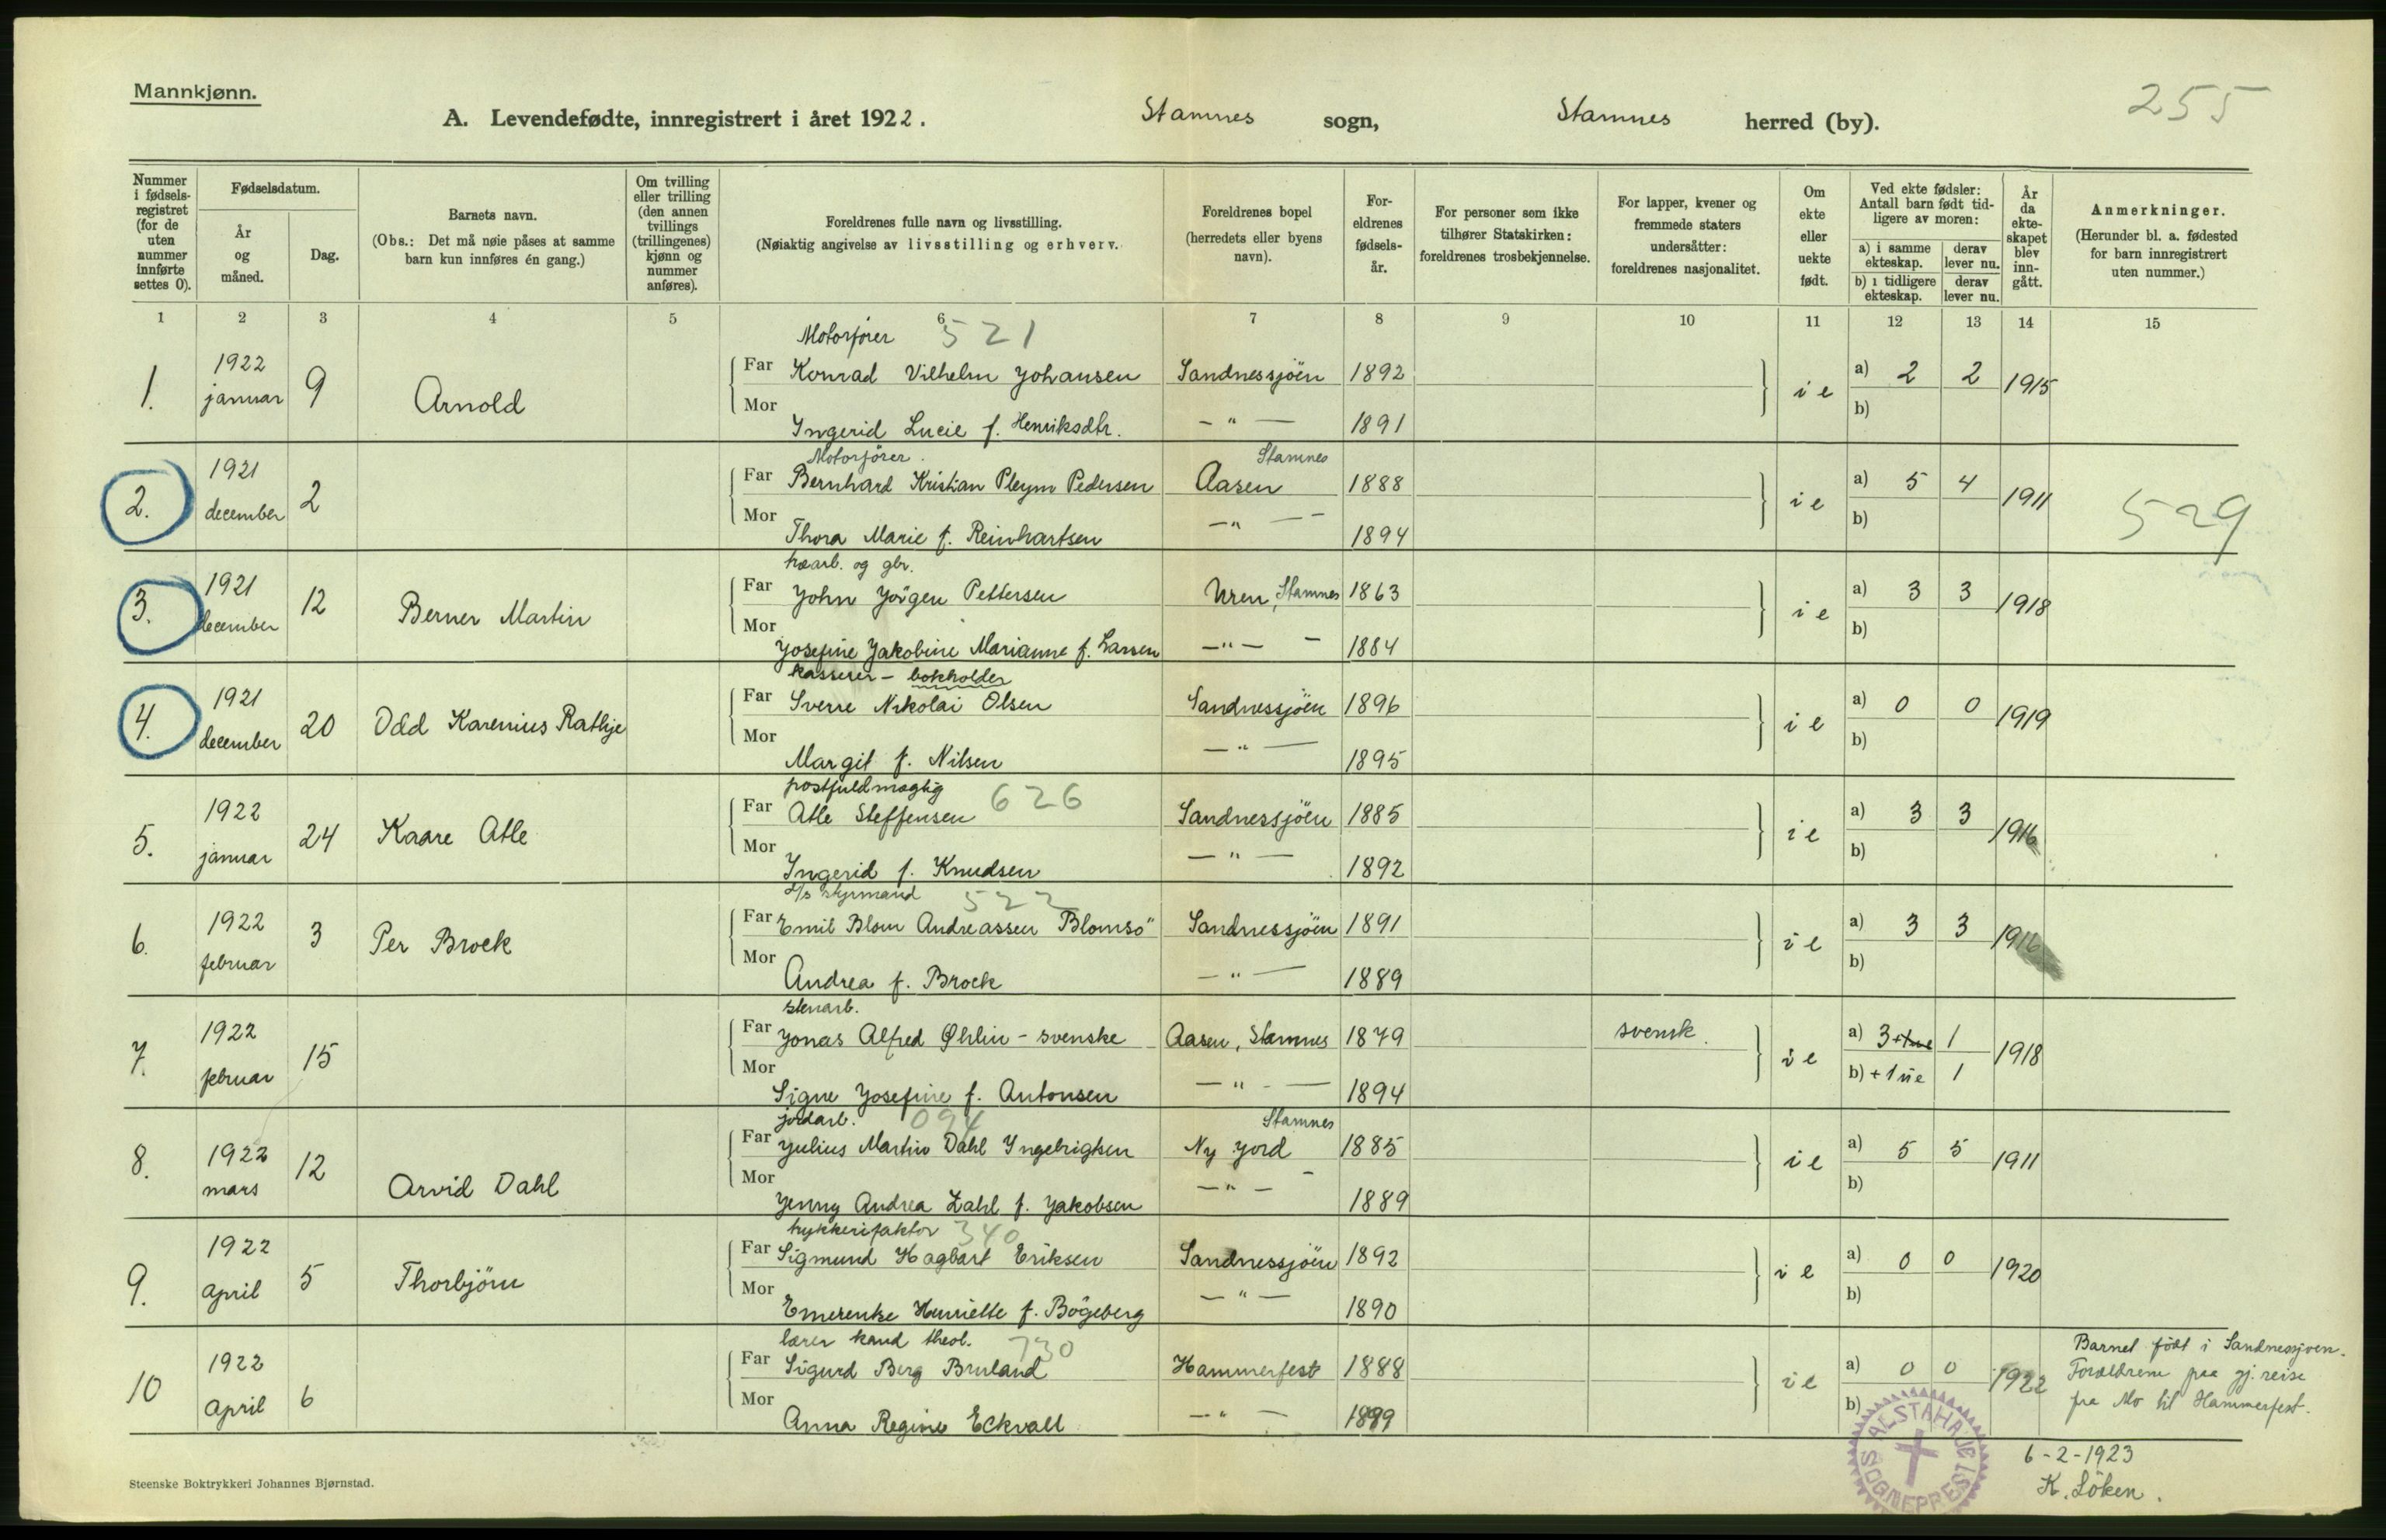 Mannkjønn.
255
A. Levendefødte, innregistrert i året 1922. Stamnes sogn, Stamnes herred (by).
Nummer i fødsels-registret (for de uten nummer innførte settes 0).
Fødselsdatum.
År og måned.
Dag.
Barnets navn.
(Obs.: Det må nøie påses at samme barn kun innføres én gang.)
Om tvilling eller trilling (den annen tvillings (trillingenes) kjønn og nummer anføres).
Foreldrenes fulle navn og livsstilling.
(Nøiaktig angivelse av livsstilling og erhverv.
Foreldrenes bopel (herredets eller byens navn).
For-eldrenes fødsels-år.
For personer som ikke tilhører Statskirken: foreldrenes trosbekjennelse.
For lapper, kvener og fremmede staters undersåtter: foreldrenes nasjonalitet.
Om ekte eller uekte født.
Ved ekte fødsler: Antall barn født tid-ligere av moren:
a) i samme ekteskap.
derav lever nu.
b) i tidligere ekteskap.
derav lever nu.
År da ekte-skapet blev inn-gått.
Anmerkninger.
(Herunder bl. a. fødested for barn innregistrert uten nummer.)
1 2 3 4 5 6 7 8 9 10 11 12 13 14 15
Motorfører 521
1. 1922 januar 9 Arnold Far Konrad Vilhelm Johansen Sandnessjöen 1892 i e a) 2 2 1915
Mor Ingerid Lucie f. Henriksdtr. —"— 1891 b)
Motorfører. Stamnes
2. 1921 december 2 Far Bernhard Kristian Pleym Pedersen Aasen 1888 i e a) 5 4 1911 529
Mor Thora Marie f. Reinhartsen —"— 1894 b)
træarb. og gbr.
3. 1921 december 12 Berner Martin Far John Jörgen Pettersen Uren, Stamnes 1863 i e a) 3 3 1918
Mor Josefine Jakobine Marianne f. Larsen —"— 1884 b)
kasserer - bokholder
4. 1921 december 20 Odd Karenius Rathje Far Sverre Nikolai Olsen Sandnessjöen 1896 i e a) 0 0 1919
Mor Margit f. Nilsen —"— 1895 b)
postfuldmægtig 626
5. 1922 januar 24 Kaare Atle Far Atle Steffensen Sandnessjöen 1885 i e a) 3 3 1916
Mor Ingerid f. Knudsen —"— 1892 b)
d/s styrmand 522
6. 1922 februar 3 Per Brock Far Emil Blom Andreassen Blomsö Sandnessjöen 1891 i e a) 3 3 1916
Mor Andrea f. Brock —"— 1889 b)
stenarb.
7. 1922 februar 15 Far Jonas Alfred Øhlin - svenske Aasen, Stamnes 1879 svensk. i e a) 3 1 1918
Mor Signe Josefine f. Antonsen —"— 1894 b) +1 ue 1
jordarb. 094 Stamnes
8. 1922 mars 12 Arvid Dahl Far Julius Martin Dahl Ingebrigtsen Ny Jord 1885 i e a) 5 5 1911
Mor Jenny Andrea Dahl f. Jakobsen —"— 1889 b)
trykkerifaktor 340
9. 1922 April 5 Thorbjörn Far Sigmund Hagbart Eriksen Sandnessjöen 1892 i e a) 0 0 1920
Mor Emerentse Henriette f. Bögeberg —"— 1890 b)
lærer kand theol. 730
10 1922 April 6 Far Sigurd Berg Bruland Hammerfest 1888 i e a) 0 0 1922
Mor Anna Regine Eckvall —"— b)
Barnet födt i Sandnessjoen.
Forældrene paa gj. reise
fra Mo til Hammerfest.
ALSTAHAUG SOGNEPREST
6-2-1923
K. Löken.
Steenske Boktrykkeri Johannes Bjørnstad.